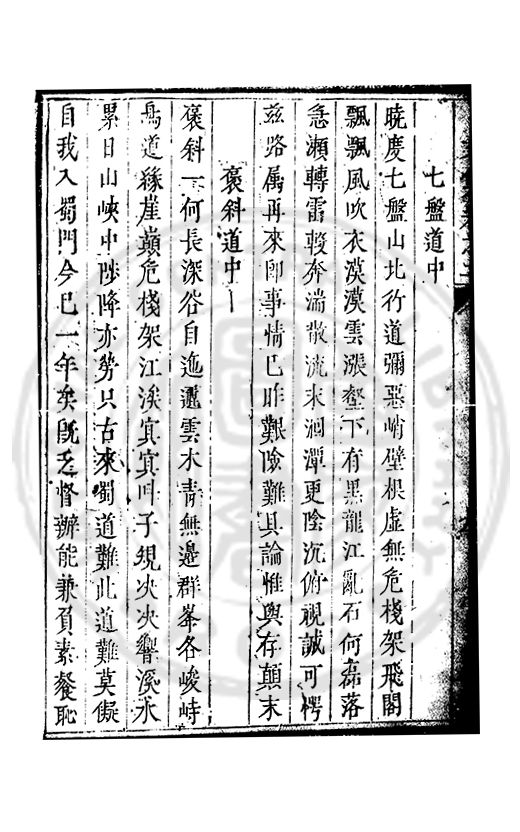 七盤道中
曉度七盤山北行道彌惡峭壁根虛無危棧架飛閣
飄飄風吹衣漠漠雲漲壑下有黑龍江亂石何磊落
急瀬轉雷轂奔湍散流沫洄潭更陰沉俯視誠可愕
茲路属再來即事情已昨艱險難具論惟與存顛末
褒斜道中
褒斜一何長深谷自迤邐雲木青無邊群峯各峻峙
鳥道緣崖巔危棧架江涘冥冥叫子規決決響溪水
累日山峽中陟降亦勞只古來蜀道難此道難莫儗
自我入蜀門今已一年矣既乏督辦能兼負素餐恥